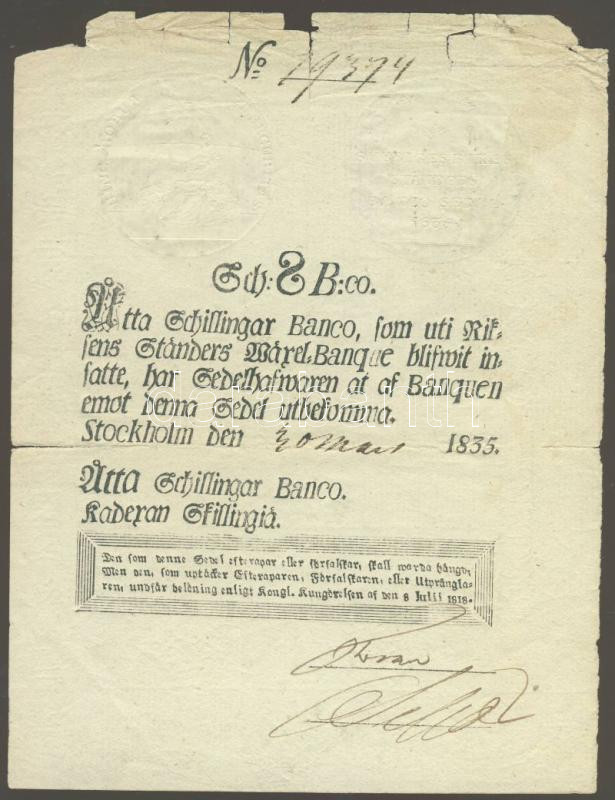 No 19374
Sch: 8 B:co.
Åtta Schillingar Banco, som uti Rik-
sens Ständers Wäxel-Banque blifwit in-
satte, har Sedelhafwaren at af Banquen
emot denna Sedel utbekomma.
Stockholm den 30 Mars 1835.
Åtta Schillingar Banco.
Kadexan Skillingiä.
Den som denne Sedel efterapar eller förfalskar, skall warda hängd;
Men den, som uptäcker Efteraparen, Förfalskaren, eller Utprängla-
ren, undfår belöning enligt Kongl. Kungörelsen af den 8 Julii 1818.